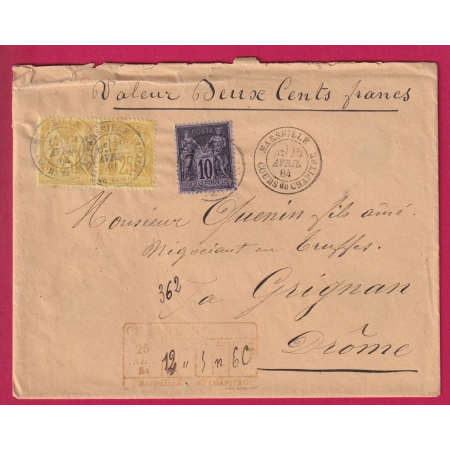 Valeur Deux Cents francs
POSTE
10
25
MARSEILLE
25
AVRIL
84
COURS du CHAPITRE
Monsieur Quenin fils aîné.
Négociant en Truffes.
362
Grignan
Drôme
CHARGEMENT
25
84
12 " 5 n 60
MARSEILLE CHAPITRE